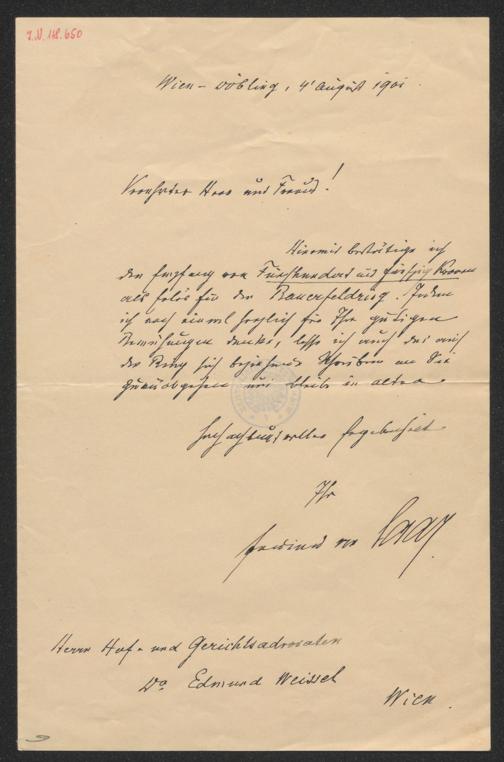 I.N. 118.650
Wien-Döbling, 4t August 1901
Verehrter Herr und Freund!
Hiermit bestätige ich
den Empfang von Fünfhundert und fünfzig Kronen
als Erlös für den Bauerfeldring. Indem
ich noch einmal herzlich für Ihre gütigen
Bemühungen danke, lasse ich auch das auf
den Ring sich beziehende Schreiben an Sie
zurückgehen und bleibe in alter
hochachtungsvoller Ergebenheit
Ihr
Ferdinand von Saar
Herrn Hof- und Gerichtsadvocaten
Dr Edmund Weissel
Wien.